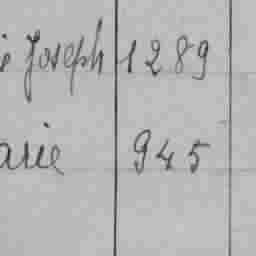 ie Joseph 1289
arie 945